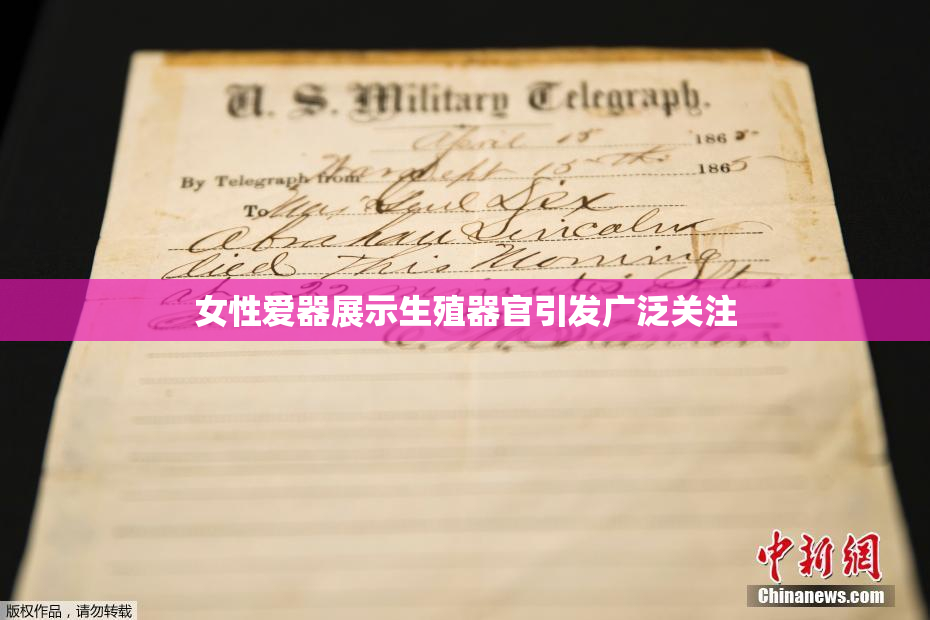 U. S. Military Telegraph.
April 15 1865
By Telegraph from War Dept 15th 1865
To Maj Genl Dix
Abraham Lincoln
died This Morning
at 22 minutes after
女性爱器展示生殖器官引发广泛关注
E. M. Stanton
中新网
Chinanews.com
版权作品，请勿转载